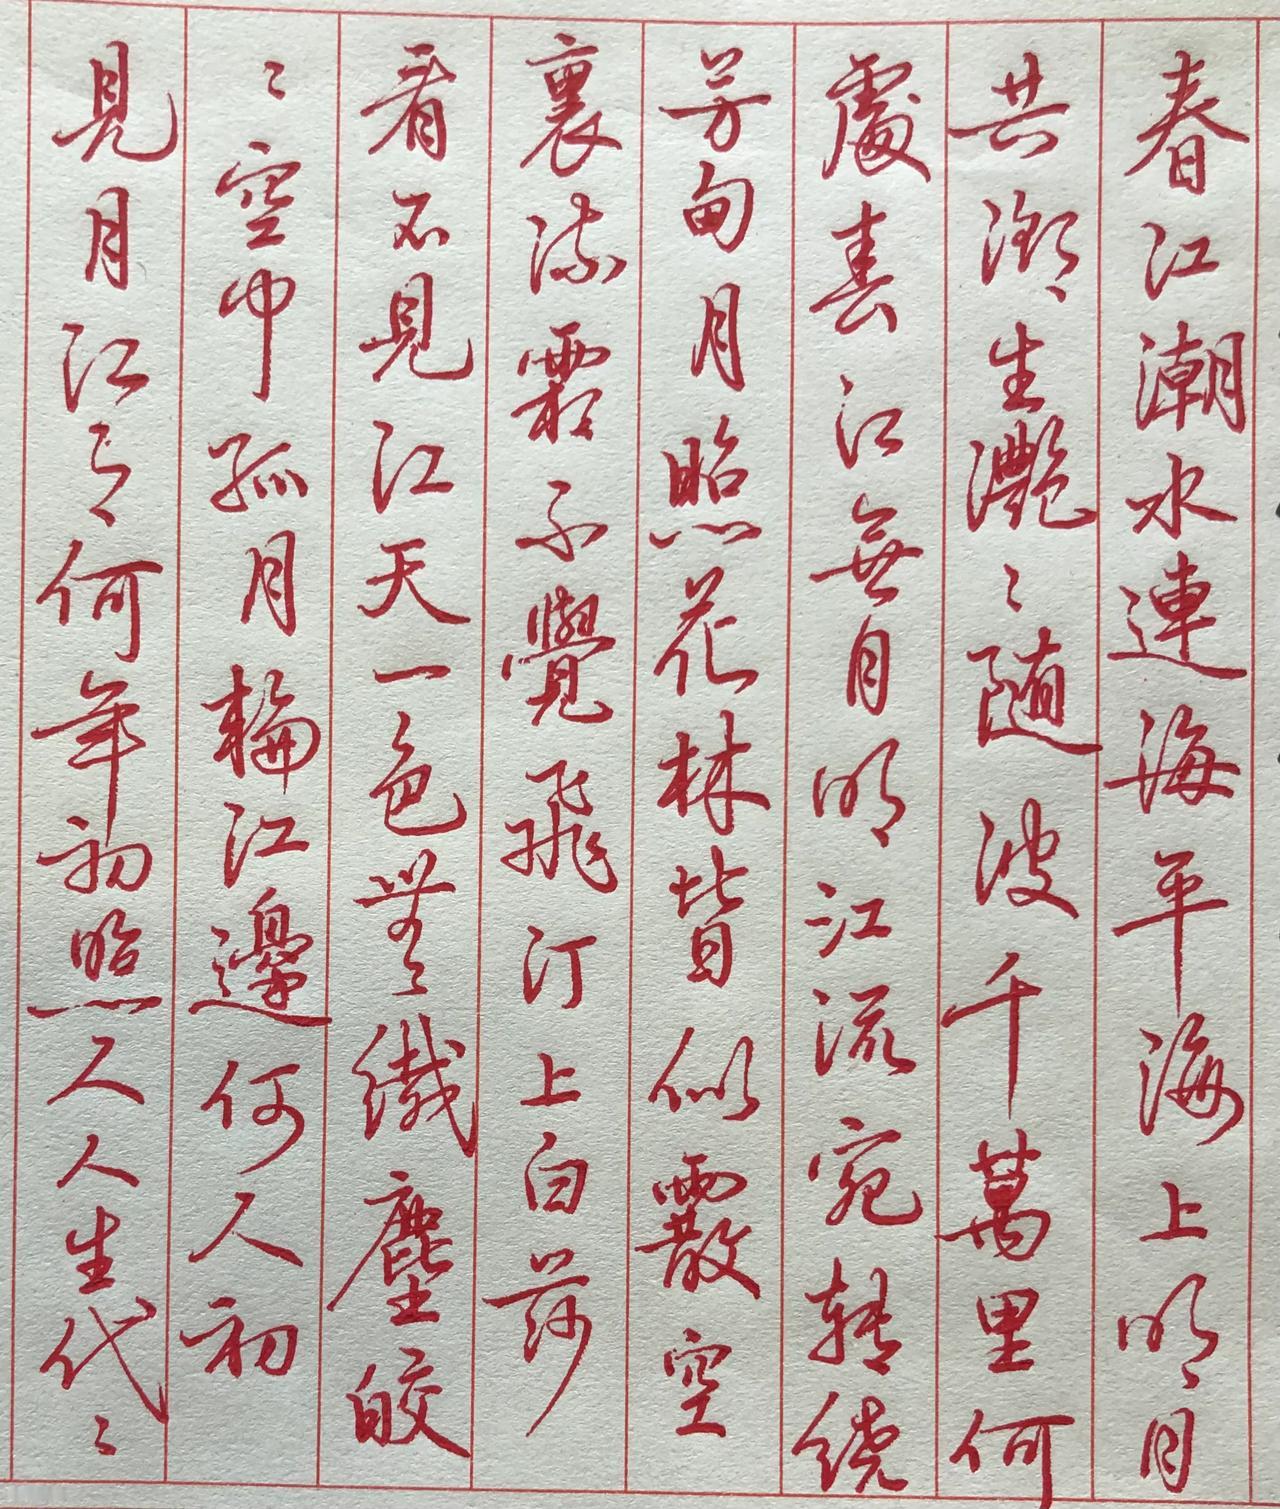 春江潮水連海平海上明月
共潮生灔〻随波千萬里何
處春江無月明江流宛转繞
芳甸月照花林皆似霰空
裏流霜不覺飛汀上白莎
看不見江天一色無纖塵皎
〻空中孤月輪江邊何人初
見月江月何年初照人人生代〻